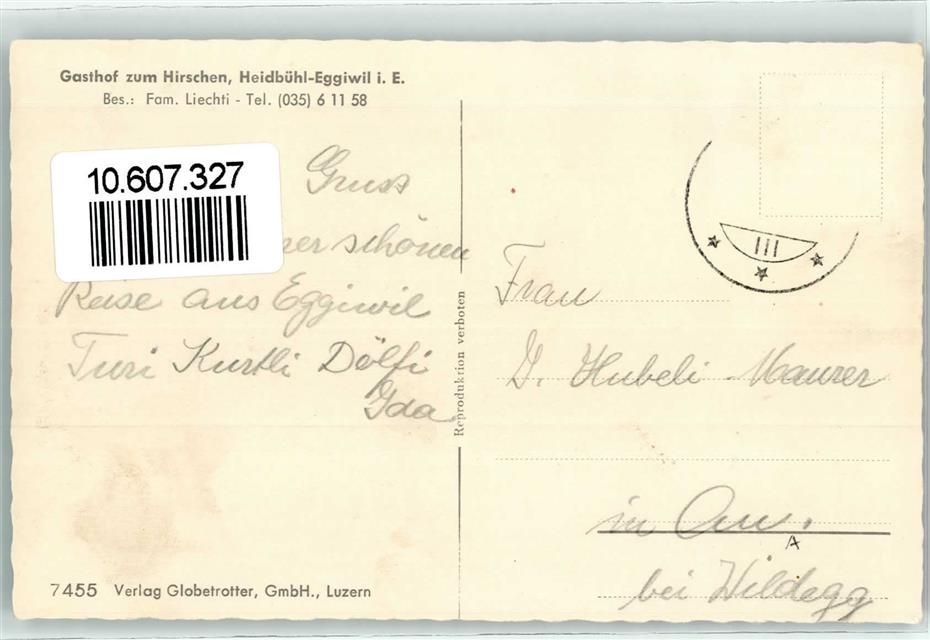 Gasthof zum Hirschen, Heidbühl-Eggiwil i. E.
Bes.: Fam. Liechti - Tel. (035) 6 11 58
10.607.327
Gruss
schönen
Reise aus Eggiwil
Turi Kurtli Dölfi
Ida
Reproduktion verboten
7455 Verlag Globetrotter, GmbH., Luzern
III
Frau
Hubeli-Maurer
in Au.
bei Wildegg